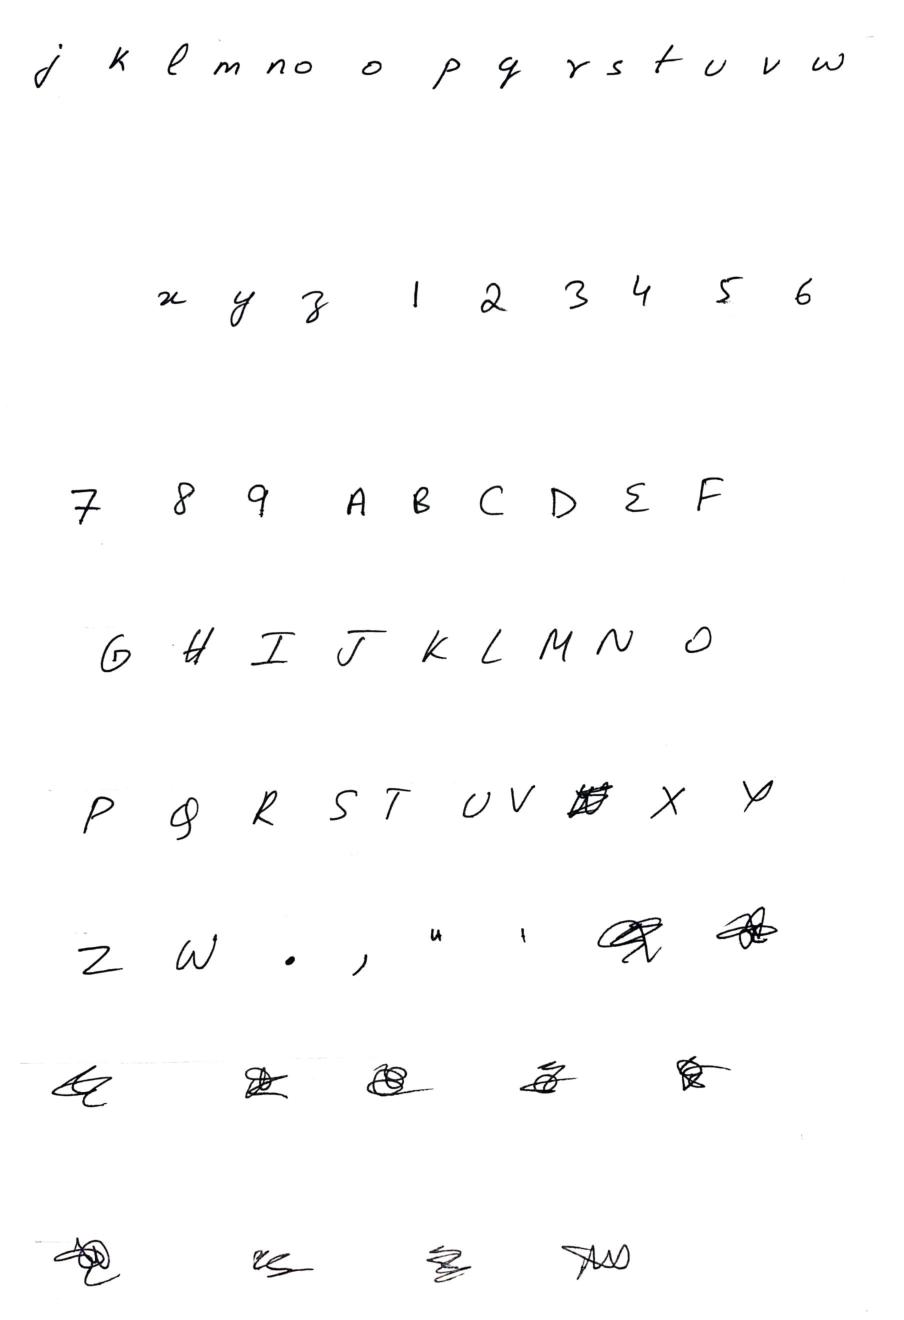 j k l m n o o p q r s t u v w
x y z 1 2 3 4 5 6
7 8 9 A B C D E F
G H I J K L M N O
P Q R S T U V X Y
Z W . , " '